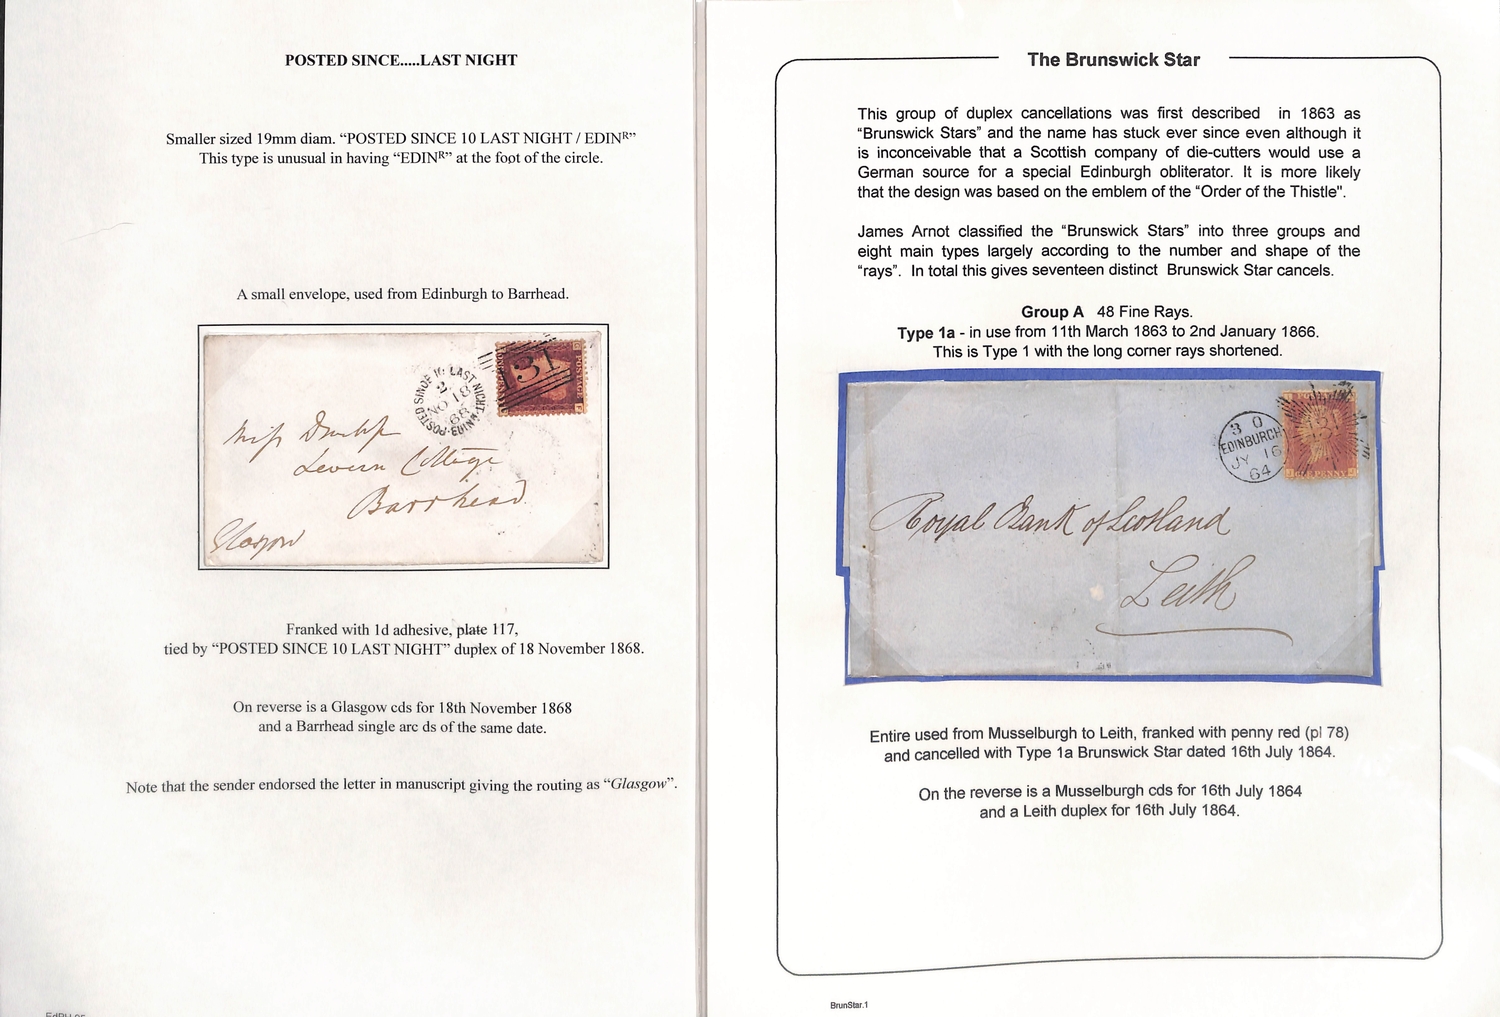 POSTED SINCE.....LAST NIGHT
Smaller sized 19mm diam. “POSTED SINCE 10 LAST NIGHT / EDINᴿ”
This type is unusual in having “EDINᴿ” at the foot of the circle.
A small envelope, used from Edinburgh to Barrhead.
POSTED SINCE 10 LAST NIGHT
2
NO 18
68
EDINR
131
Miss Dunlop
Levern Cottage
Barrhead
Glasgow
Franked with 1d adhesive, plate 117,
tied by “POSTED SINCE 10 LAST NIGHT” duplex of 18 November 1868.
On reverse is a Glasgow cds for 18th November 1868
and a Barrhead single arc ds of the same date.
Note that the sender endorsed the letter in manuscript giving the routing as “Glasgow”.
The Brunswick Star
This group of duplex cancellations was first described in 1863 as
“Brunswick Stars” and the name has stuck ever since even although it
is inconceivable that a Scottish company of die-cutters would use a
German source for a special Edinburgh obliterator. It is more likely
that the design was based on the emblem of the “Order of the Thistle".
James Arnot classified the “Brunswick Stars” into three groups and
eight main types largely according to the number and shape of the
“rays”. In total this gives seventeen distinct Brunswick Star cancels.
Group A 48 Fine Rays.
Type 1a - in use from 11th March 1863 to 2nd January 1866.
This is Type 1 with the long corner rays shortened.
3 0
EDINBURGH
JY 16
64
131
Royal Bank of Scotland
Leith
Entire used from Musselburgh to Leith, franked with penny red (pl 78)
and cancelled with Type 1a Brunswick Star dated 16th July 1864.
On the reverse is a Musselburgh cds for 16th July 1864
and a Leith duplex for 16th July 1864.
BrunStar.1